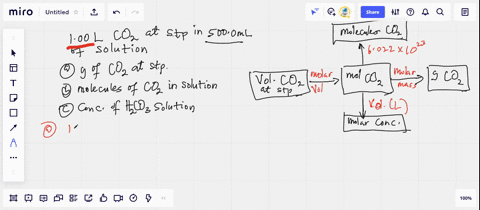 miro
Untitled
1.00 L CO2 at stp in 500.0mL
of solution
a g of CO2 at stp.
b molecules of CO2 in solution
c Conc. of H2CO3 solution
a 1.
molecules CO2
6.022x10^23
Vol. CO2
at stp
molar
Vol
mol CO2
molar
mass
g CO2
Vol. (L)
molar Conc.
100%